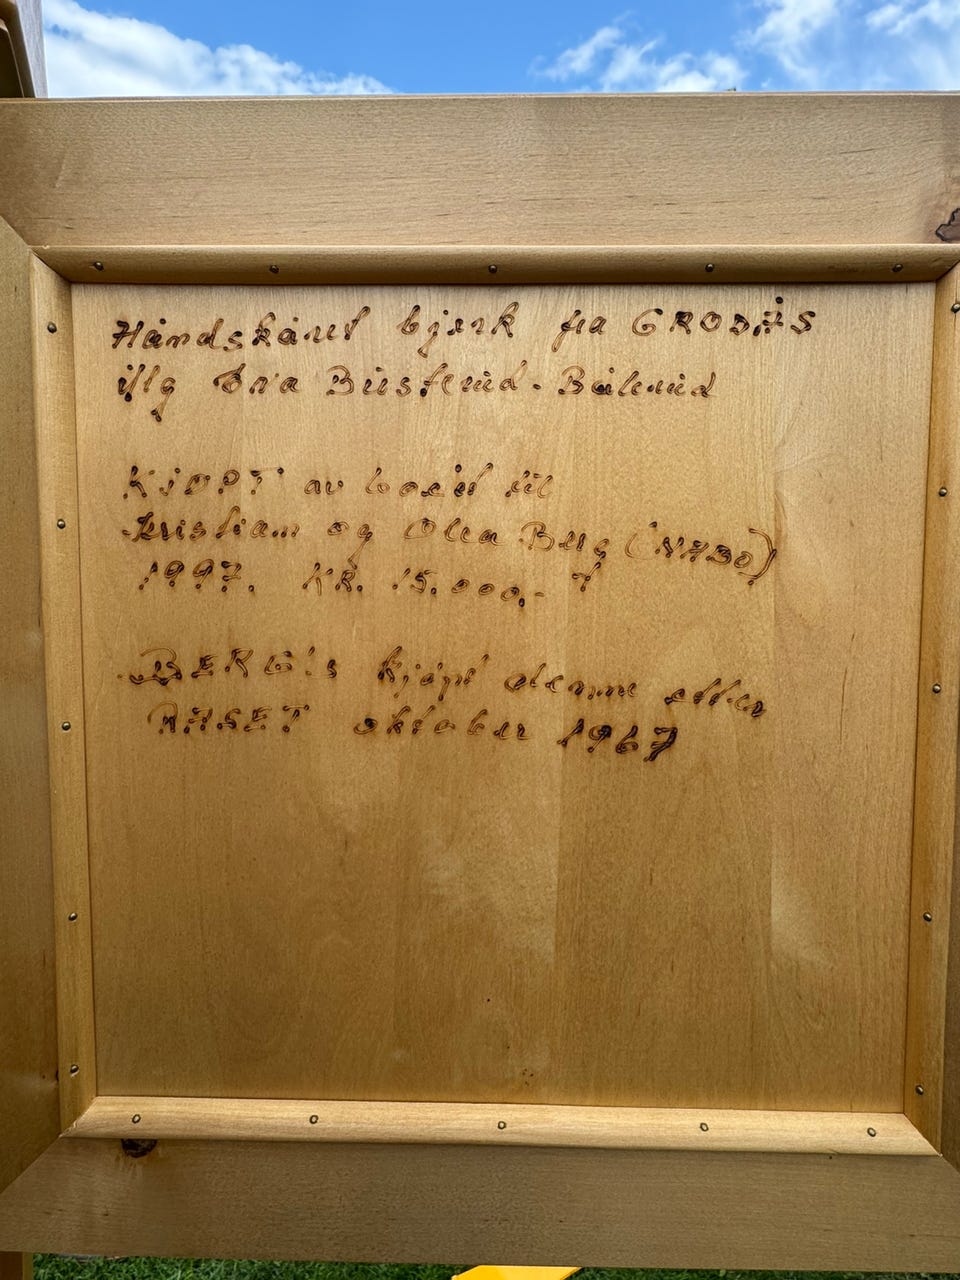 Håndskåret bjerk fra GRODÅS
iflg Dna Busterud-Bålerud
KJØPT av boet til
Kristian og Olea Berg (NABO)
1997. KR. 15.000,-
BERG's kjøpt denne etter
RASET oktober 1967